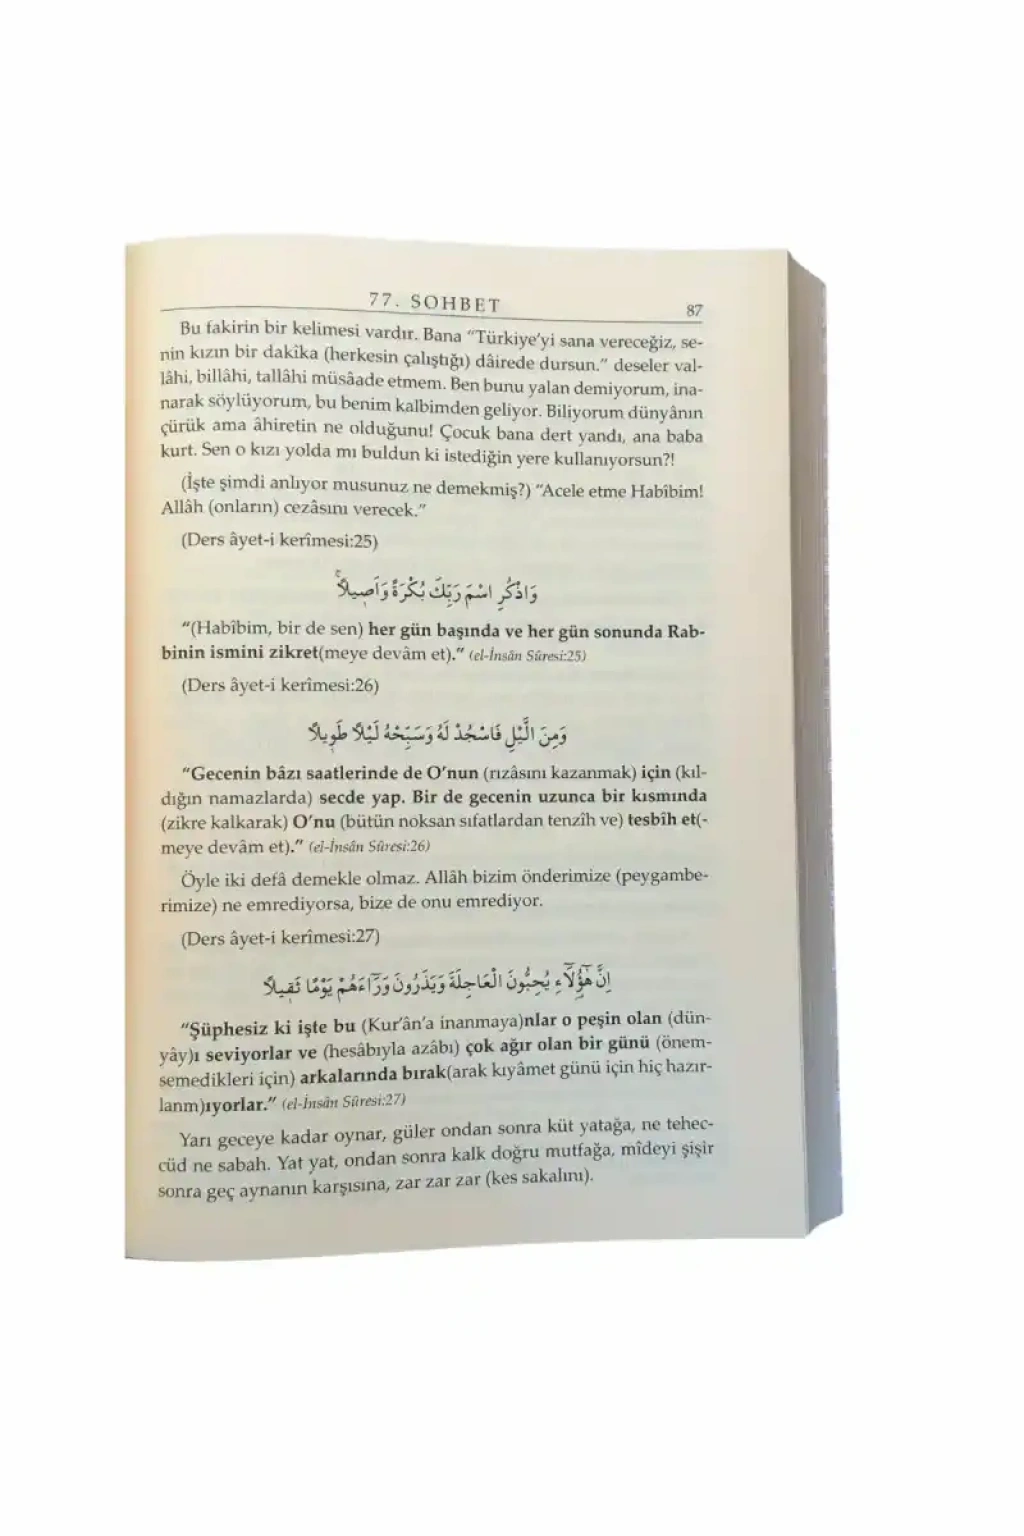 77. SOHBET
87
Bu fakirin bir kelimesi vardır. Bana “Türkiye’yi sana vereceğiz, se-
nin kızın bir dakîka (herkesin çalıştığı) dâirede dursun.” deseler val-
lâhi, billâhi, tallâhi müsâade etmem. Ben bunu yalan demiyorum, ina-
narak söylüyorum, bu benim kalbimden geliyor. Biliyorum dünyânın
çürük ama âhiretin ne olduğunu! Çocuk bana dert yandı, ana baba
kurt. Sen o kızı yolda mı buldun ki istediğin yere kullanıyorsun?!
(İşte şimdi anlıyor musunuz ne demekmiş?) “Acele etme Habîbim!
Allâh (onların) cezâsını verecek.”
(Ders âyet-i kerîmesi:25)
وَاذْكُرِ اسْمَ رَبِّكَ بُكْرَةً وَاَصٖيلاًۚ
“(Habîbim, bir de sen) her gün başında ve her gün sonunda Rab-
binin ismini zikret(meye devâm et).” (el-İnsân Sûresi:25)
(Ders âyet-i kerîmesi:26)
وَمِنَ الَّيْلِ فَاسْجُدْ لَهُ وَسَبِّحْهُ لَيْلاً طَوٖيلاً
“Gecenin bâzı saatlerinde de O’nun (rızâsını kazanmak) için (kıl-
dığın namazlarda) secde yap. Bir de gecenin uzunca bir kısmında
(zikre kalkarak) O’nu (bütün noksan sıfatlardan tenzîh ve) tesbîh et(-
meye devâm et).” (el-İnsân Sûresi:26)
Öyle iki defâ demekle olmaz. Allâh bizim önderimize (peygambe-
rimize) ne emrediyorsa, bize de onu emrediyor.
(Ders âyet-i kerîmesi:27)
اِنَّ هٰٓؤُلَٓاءِ يُحِبُّونَ الْعَاجِلَةَ وَيَذَرُونَ وَرَٓاءَهُمْ يَوْمًا ثَقٖيلاً
“Şüphesiz ki işte bu (Kur’ân’a inanmaya)nlar o peşin olan (dün-
yây)ı seviyorlar ve (hesâbıyla azâbı) çok ağır olan bir günü (önem-
semedikleri için) arkalarında bırak(arak kıyâmet günü için hiç hazır-
lanm)ıyorlar.” (el-İnsân Sûresi:27)
Yarı geceye kadar oynar, güler ondan sonra küt yatağa, ne tehec-
cüd ne sabah. Yat yat, ondan sonra kalk doğru mutfağa, mîdeyi şişir
sonra geç aynanın karşısına, zar zar zar (kes sakalını).